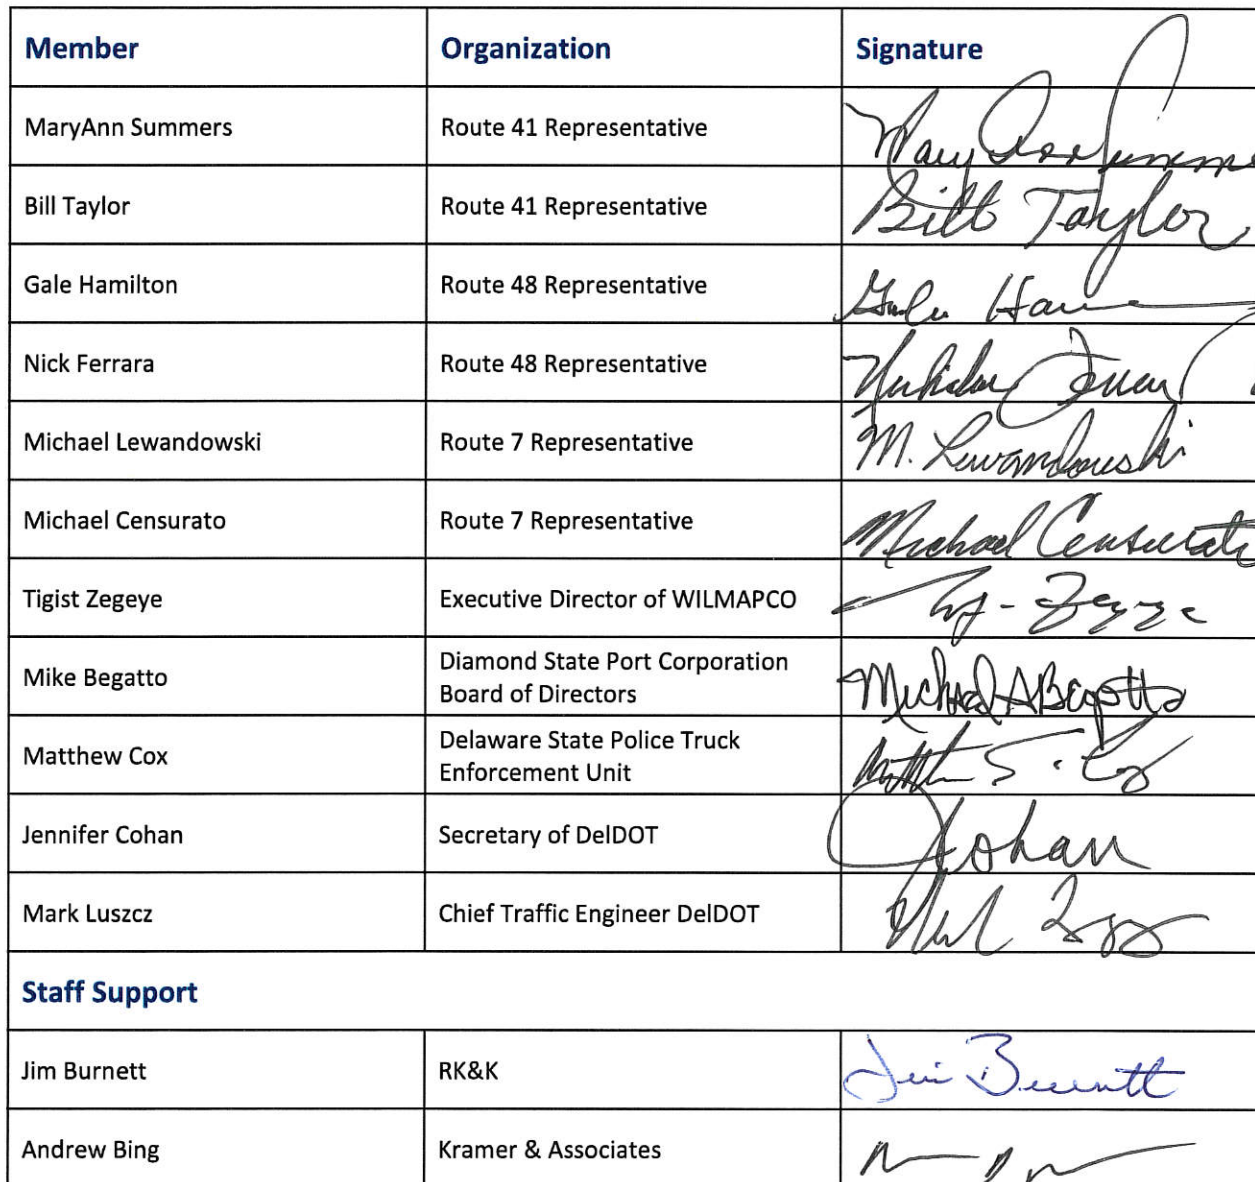 Member Organization Signature
MaryAnn Summers Route 41 Representative Mary Ann Summe
Bill Taylor Route 41 Representative Bill Taylor
Gale Hamilton Route 48 Representative Gale Ham
Nick Ferrara Route 48 Representative Nicholas
Michael Lewandowski Route 7 Representative M. Lewandowski
Michael Censurato Route 7 Representative Michael Censurato
Tigist Zegeye Executive Director of WILMAPCO
Mike Begatto Diamond State Port Corporation Michael A Begatto
Board of Directors
Matthew Cox Delaware State Police Truck
Enforcement Unit
Jennifer Cohan Secretary of DelDOT JCohan
Mark Luszcz Chief Traffic Engineer DelDOT
Staff Support
Jim Burnett RK&K Jim Burnett
Andrew Bing Kramer & Associates